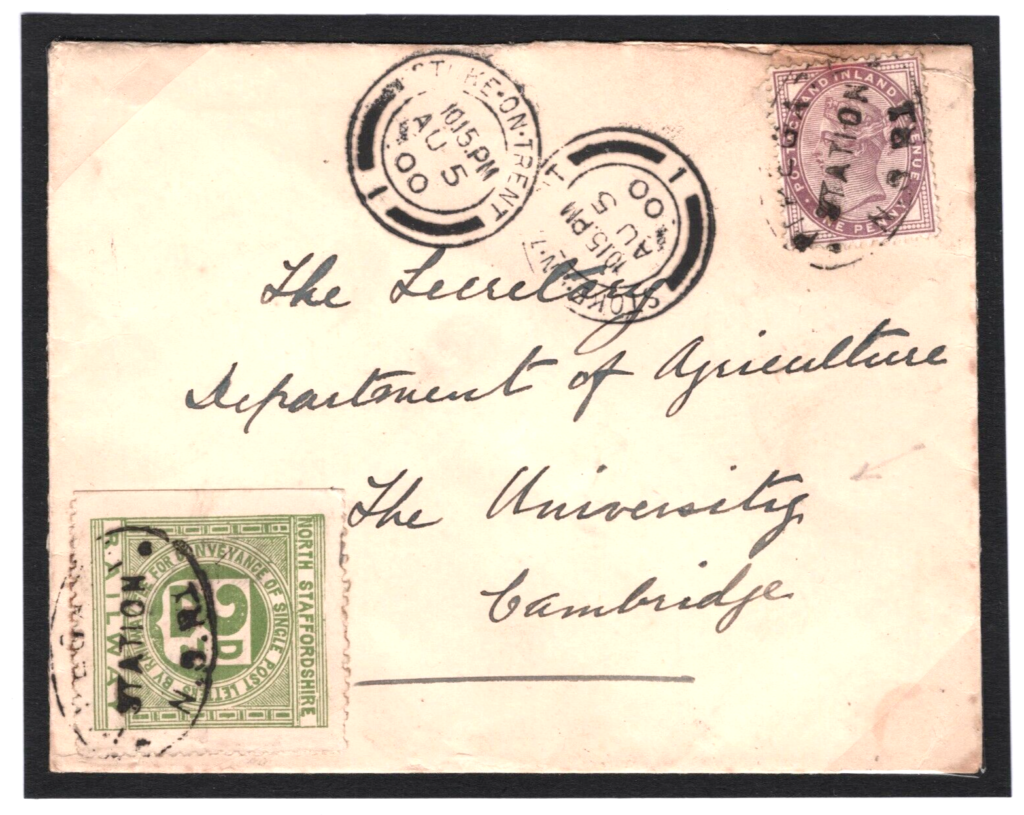 STOKE·ON·TRENT
10.15.PM
AU 5
00
1
STOKE·ON·T
10.15.PM
AU
5
00
1
POSTAGE AND INLAND REVENUE
ONE PENNY
STATION
N.S.RY
The Secretary
Department of Agriculture
The University
Cambridge
NORTH STAFFORDSHIRE
RAILWAY
FOR CONVEYANCE OF SINGLE POST LETTERS BY RAILWAY
2D
STATION
N.S.RY